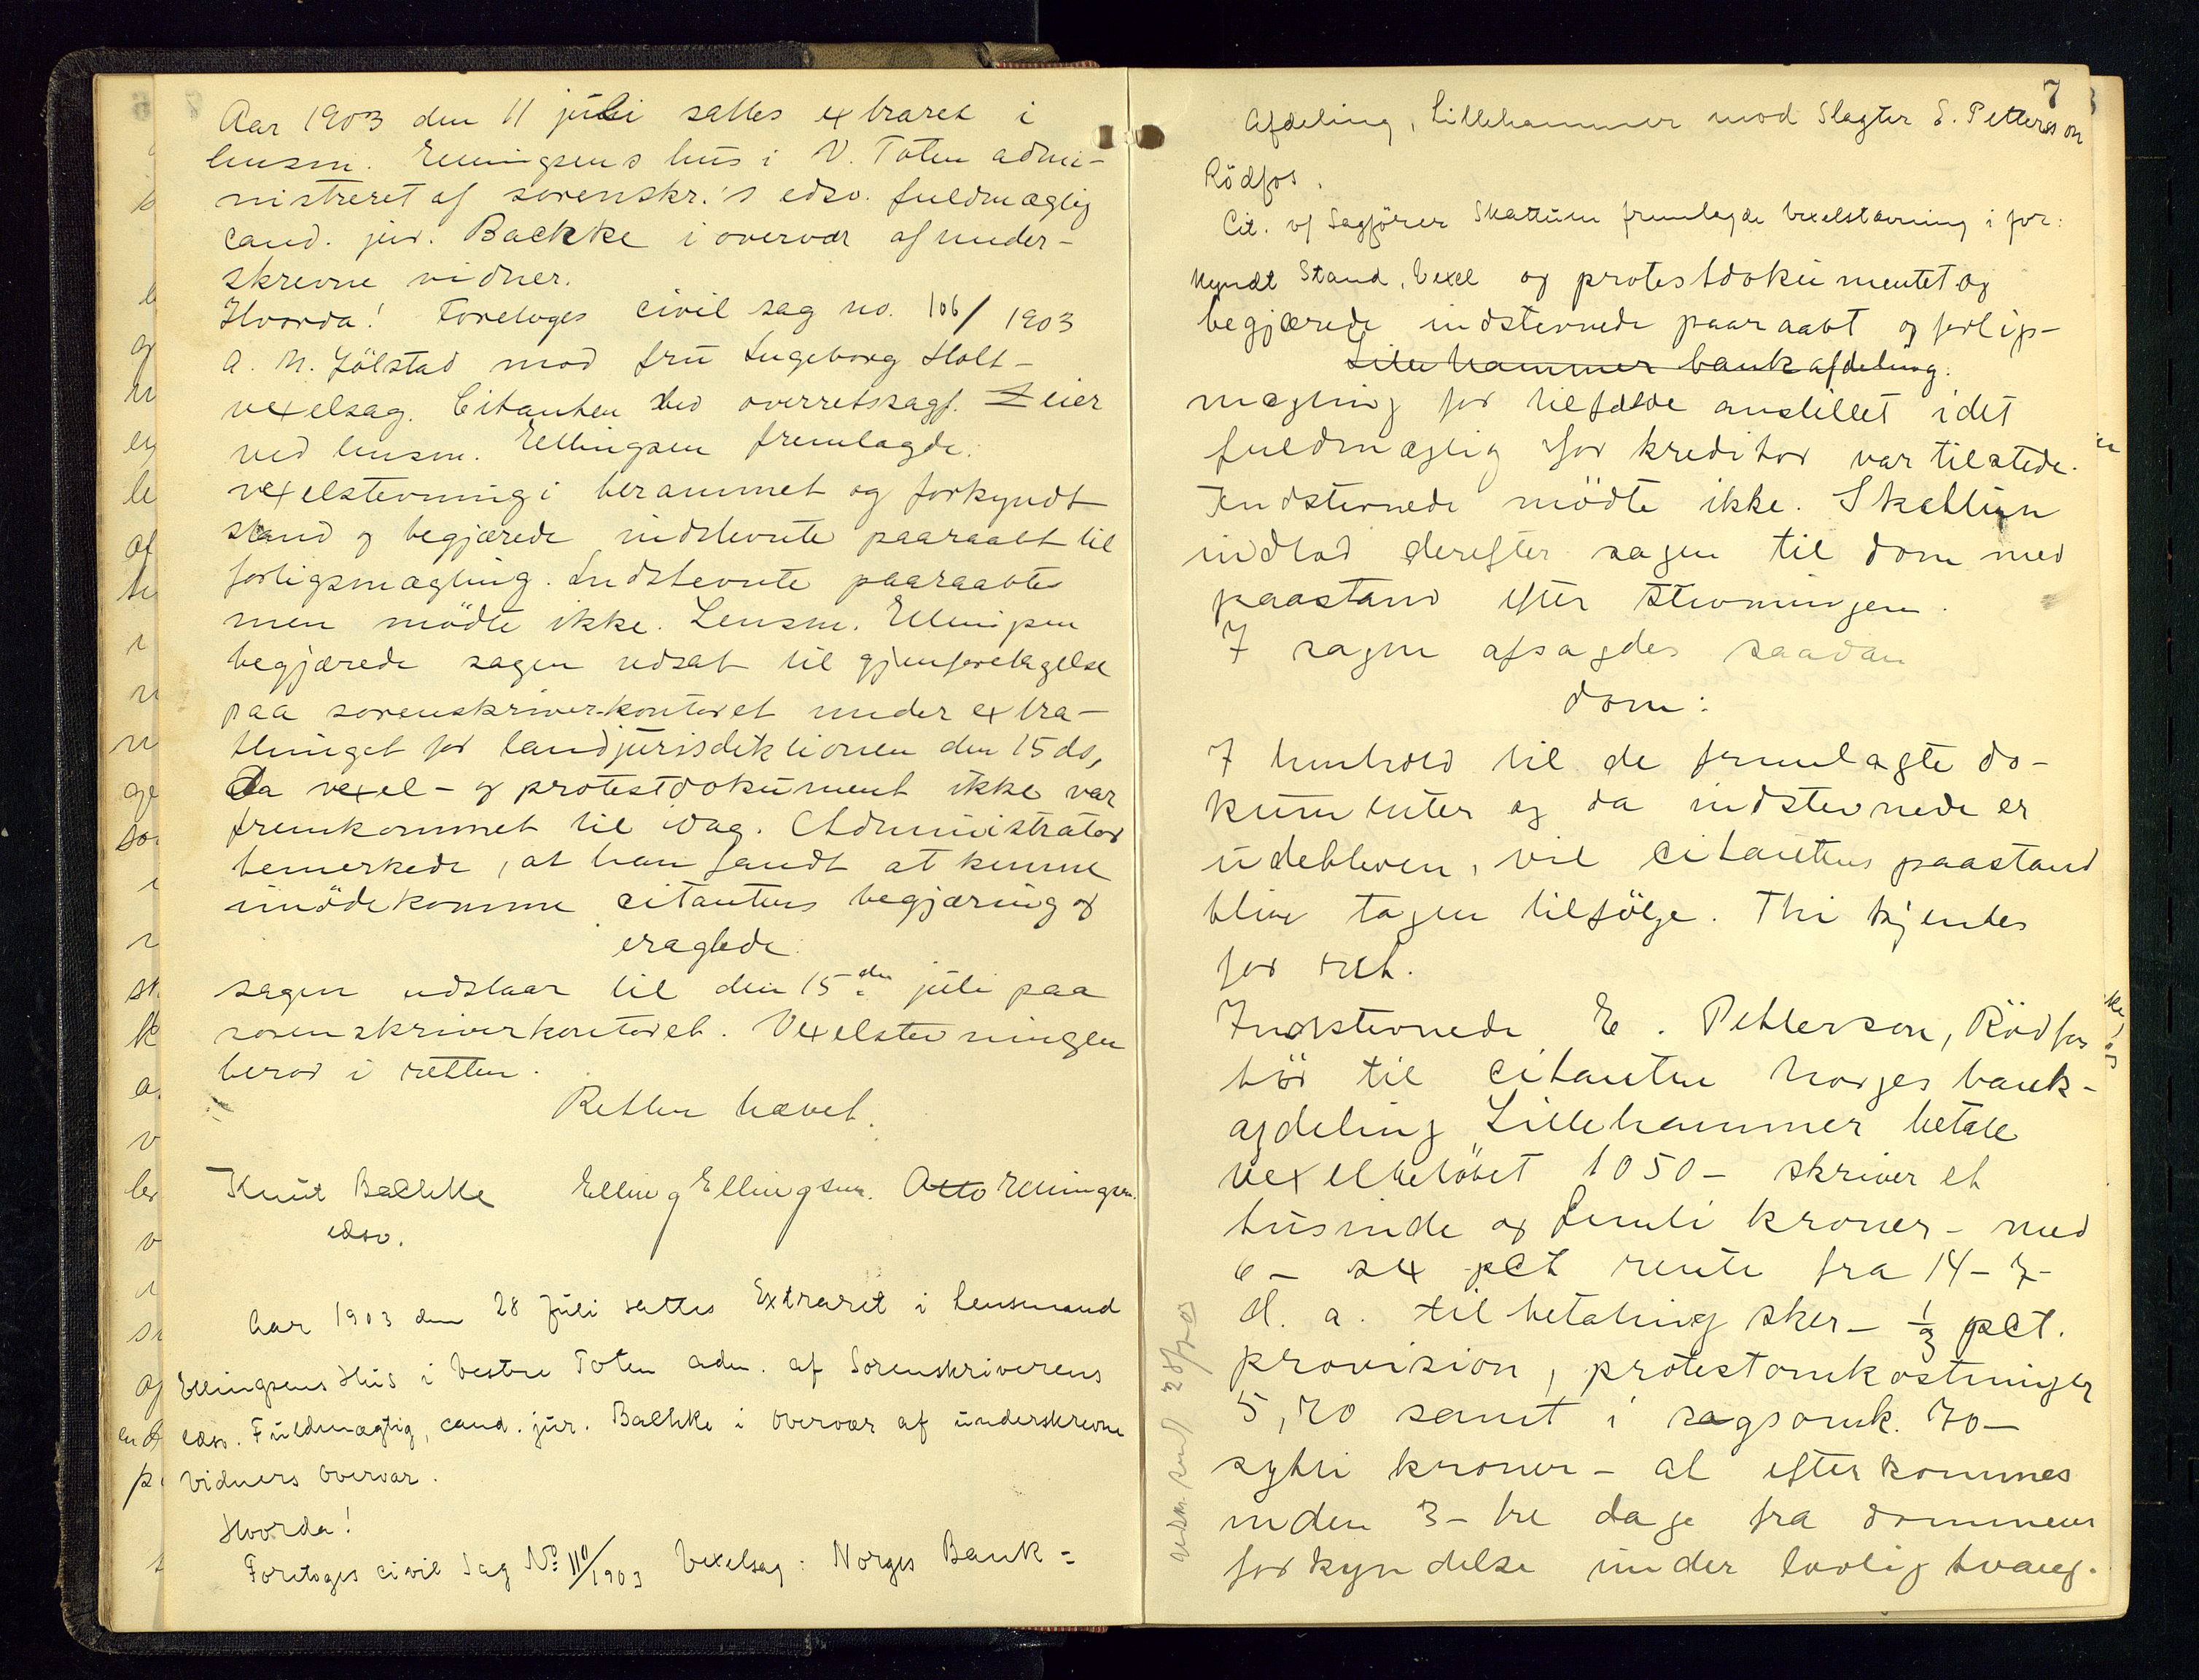 Aar 1903 den 11 juli sattes extraret i
lensm. Ellingsens hus i V. Toten admi-
nistreret af sorenskr.'s edsv. fuldmægtig
cand. jur. Backke i overvær af under-
skrevne vidner.
Hvorda! Foretoges civil sag no. 106/1903
A. M. Jölstad mod fru Ingeborg Holt-
vexelsag. Citanten ved overretssagf. Zeier
ved lensm. Ellingsen fremlagde
vexelstevning i berammet og forkyndt
stand og begjærede indstevnte paaraabt til
forligsmægling. Indstevnte paaraabtes
men mödte ikke. Lensm. Ellingsen
begjærede sagen udsat til gjenforetagelse
paa sorenskriverkontoret under extra-
thinget for landjurisdiktionen den 15 ds,
da vexel- og protestdokument ikke var
fremkommet til idag. Administrator
bemerkede, at han fandt at kunne
imödekomme citantens begjæring og
eragtede:
sagen udstaar til den 15de juli paa
sorenskriverkontoret. Vexelstevningen
beror i retten.
Retten hævet.
Knut Backke Elling Ellingsen. Otto Ellingsen.
edsv.
Aar 1903 den 28 Juli sattes Extraret i Lensmand
Ellingsens Hus i Vestre Toten adm. af Sorenskriverens
edsv. Fuldmægtig, cand. jur. Backke i Overvær af underskrevne
Vidners Overvær.
Hvorda!
Foretoges civil Sag No 110/1903 Vexelsag: Norges Bank-
7
Afdeling, Lillehammer mod Slagter E. Petterson
Rödfos.
Cit. v/ Sagförer Skattum fremlagde Vexelstævning i for:
kyndt Stand, Vexel og protestdokumentet og
begjærede indstevnede paaraabt og forligs-
Lillehammer bankafdeling.
mægling for tilfælde anstillet idet
fuldmægtig for kreditor var tilstede.
Indstevnede mödte ikke. Skattum
indlod derefter sagen til dom med
paastand efter stevningen.
I sagen afsagdes saadan
dom:
I henhold til de fremlagte do-
kumenter og da indstevnede er
udebleven, vil citantens paastand
blive tagen tilfölge. Thi kjendes
for ret.
Indstevnede E. Petterson, Rödfos
bör til citanten Norges bank-
afdeling Lillehammer betale
vexelbelöbet 1050- skriver et
tusinde og femti kroner- med
6- sex pct rente fra 14-7-
d. a. til betaling sker- 1/3 pct.
provision, protestomkostninger
5,20 samt i sagsomk. 70-
sytti kroner- at efterkommes
inden 3- tre dage fra dommens
forkyndelse under lovlig tvang.